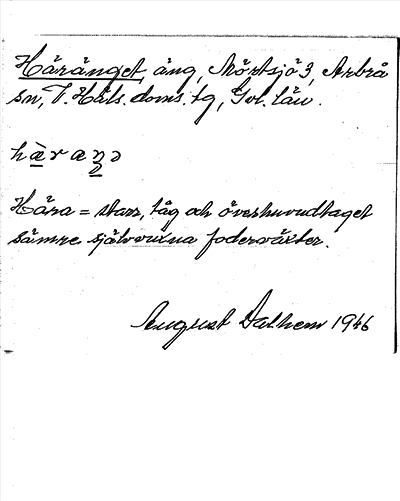 Häränget, äng, Mörtsjö 3, Arbrå
sn, V. Häls. doms. tg, Gvl. län.
hæ̀raŋə
Hära = starr, tåg och överhuvudtaget
sämre självvuxna foderväxter.
August Dalhem 1946